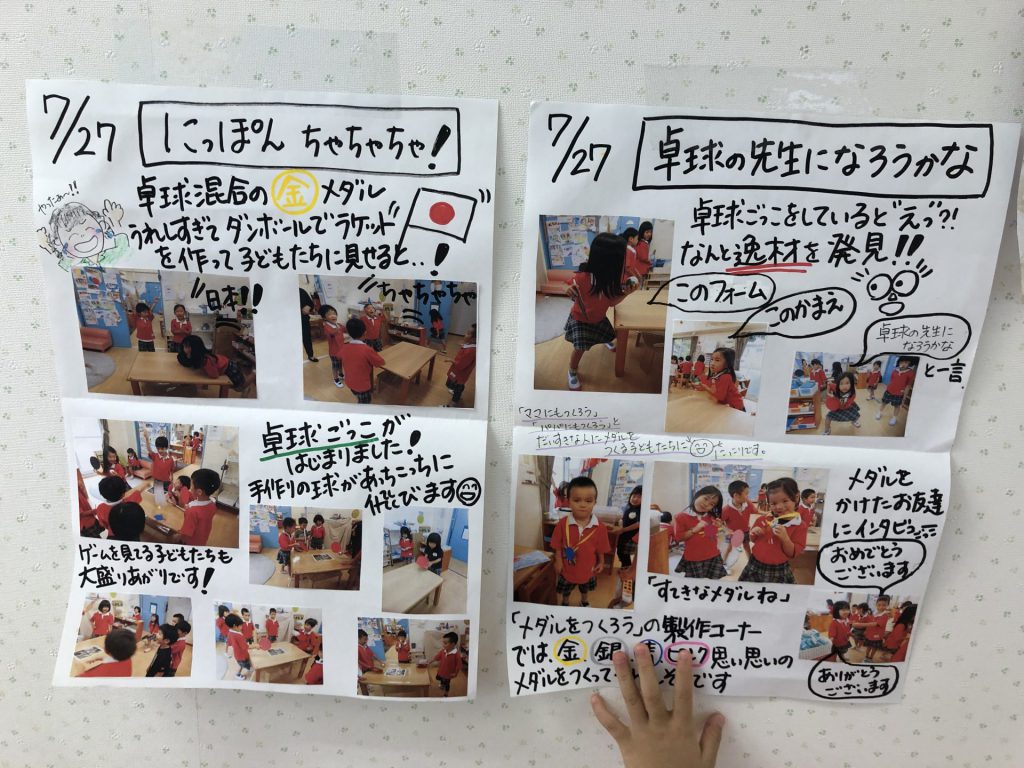 7/27
にっぽん ちゃちゃちゃ!
やったぁ〜!!
卓球混合の金メダル
うれしすぎてダンボールでラケット
を作って子どもたちに見せると..!
日本!!
ちゃちゃちゃ
卓球ごっこが
はじまりました!
手作りの球があっちこっちに
飛びます
ゲームを見てる子どもたちも
大盛りあがりです!
7/27
卓球の先生になろうかな
卓球ごっこをしていると"えっ"?!
なんと逸材を発見!!
このフォーム
このかまえ
卓球の先生に
なろうかな
と一言
「ママにもつくろう」
「パパにもつくろう」と
だいすきな人にメダルを
つくる子どもたちに にっこりです。
メダルを
かけたお友達
にインタビュー
おめでとう
ございます
「すてきなメダルね」
ありがとう
ございます
「メダルをつくろう」の製作コーナー
では、金 銀 思い思いの
メダルをつくって です